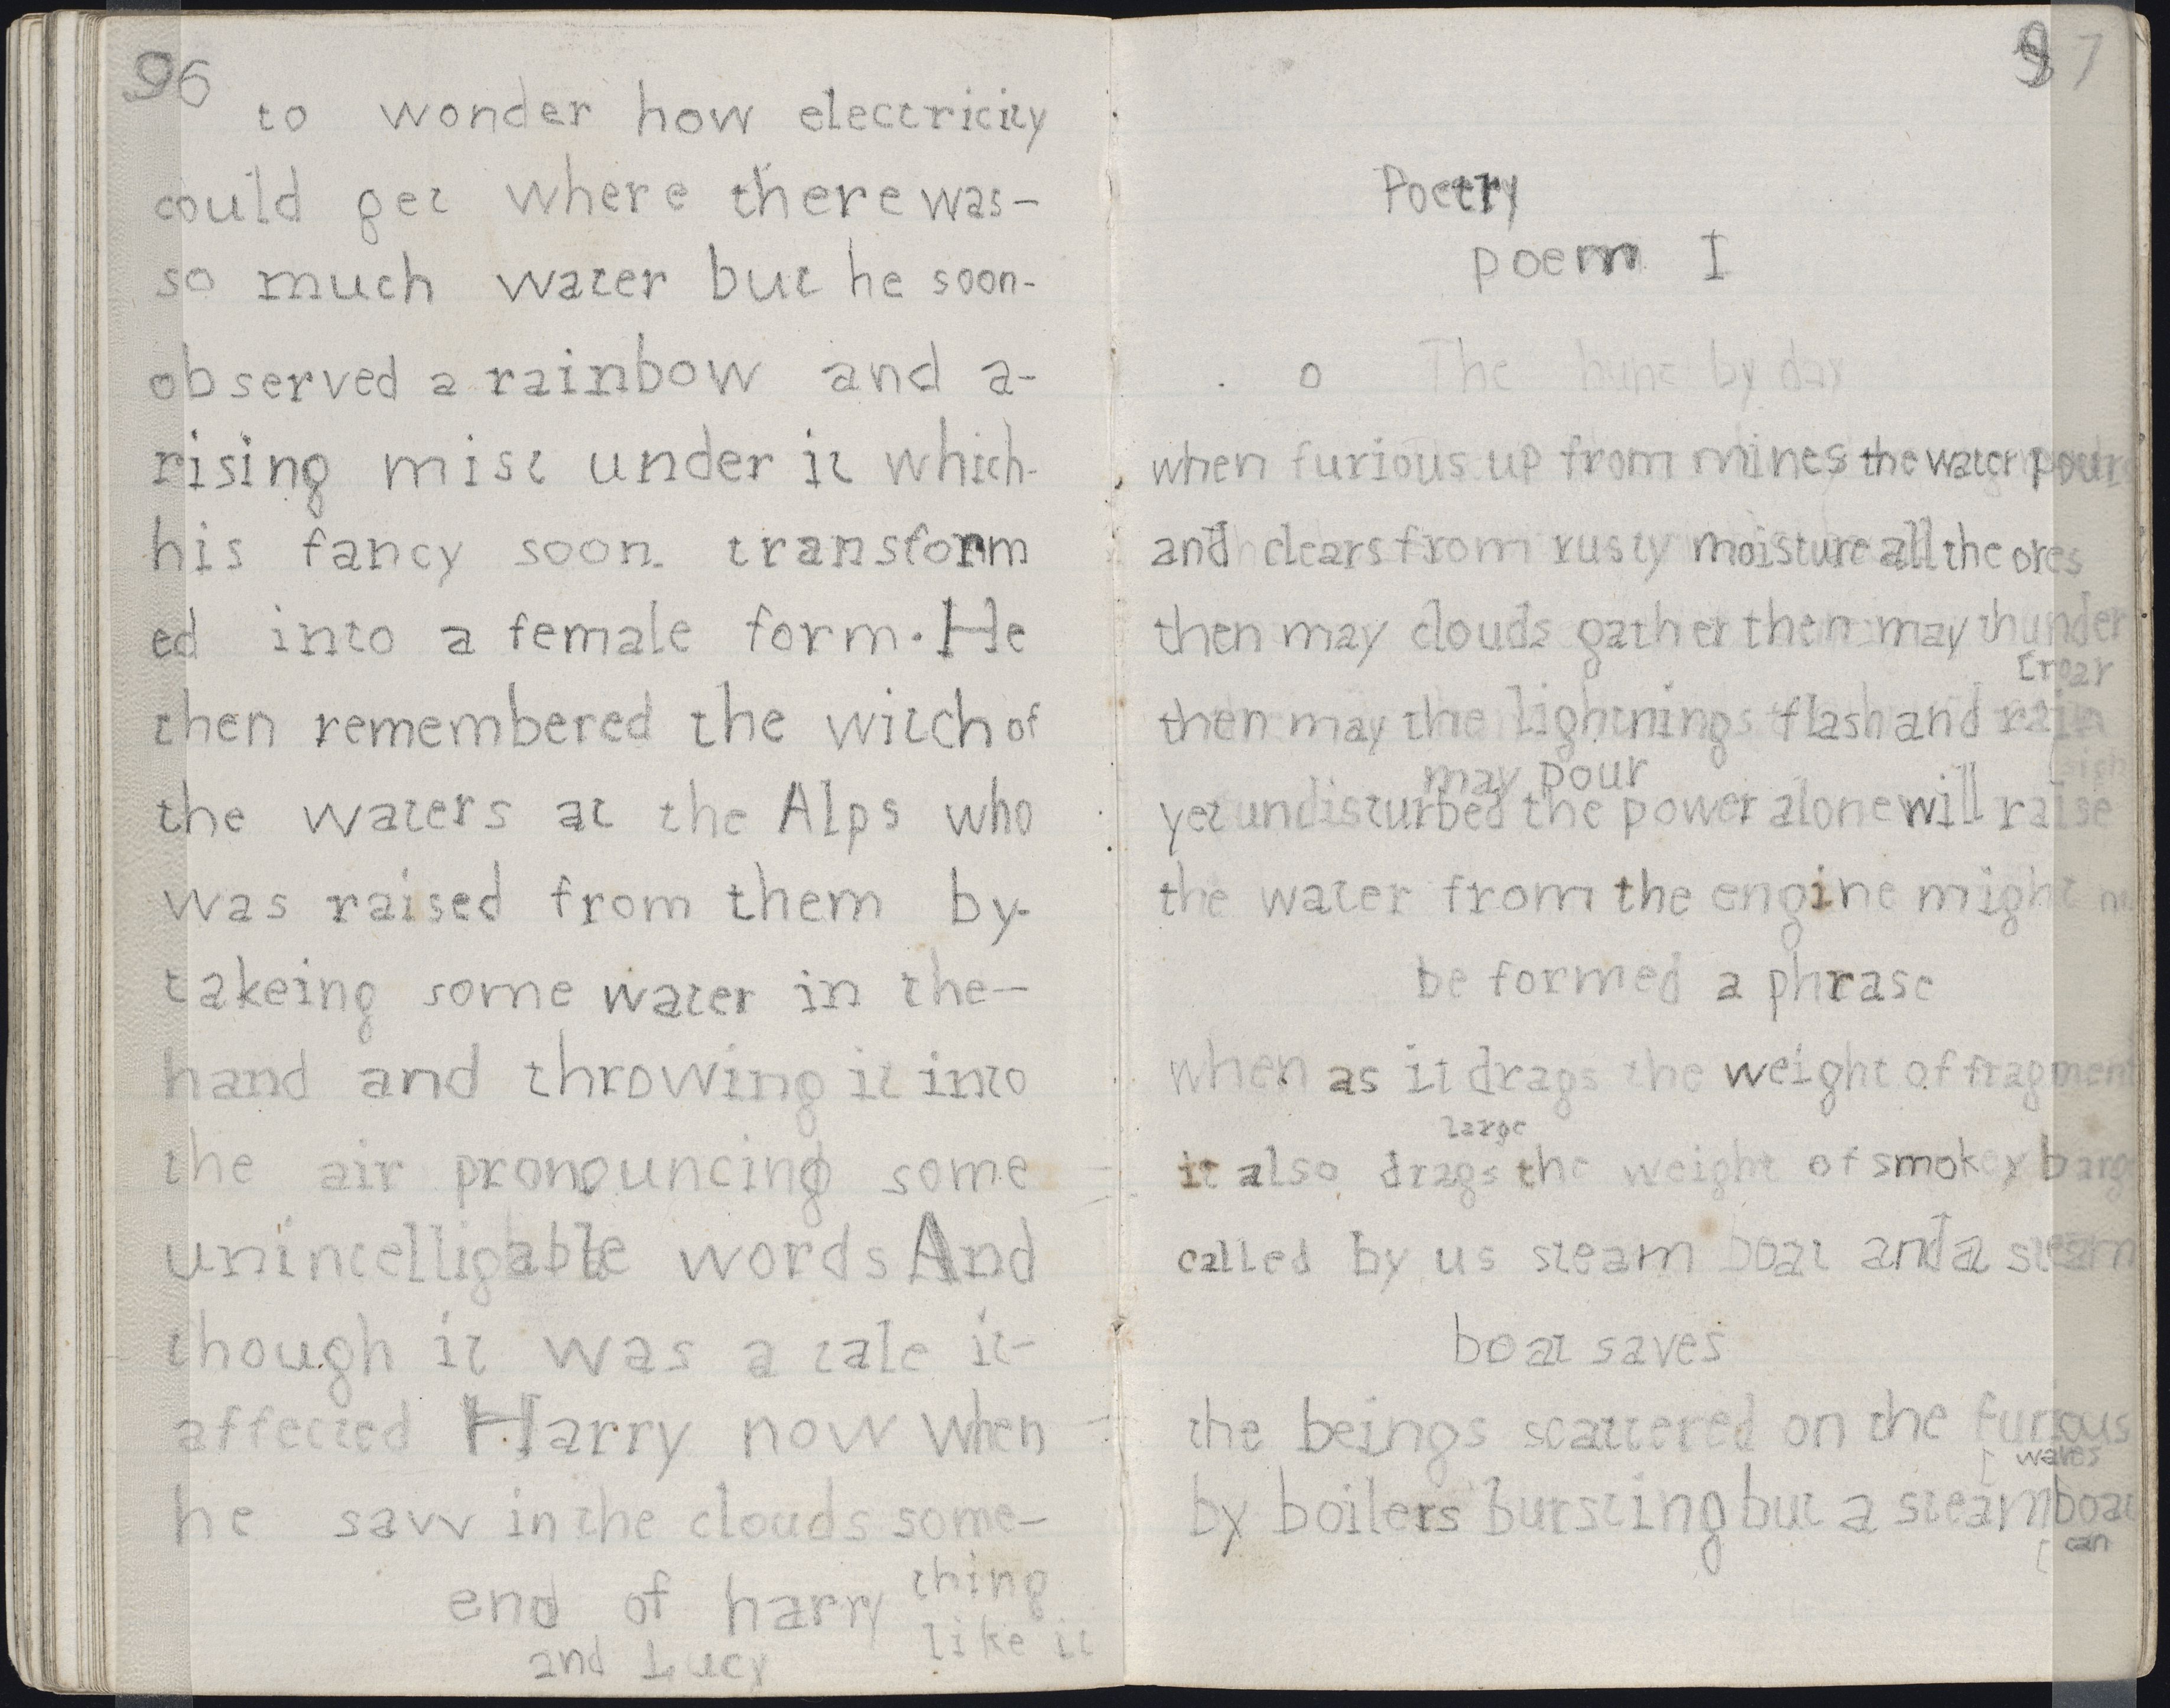 96
to wonder how electricity
could get where there was-
so much water but he soon-
observed a rainbow and a-
rising mist under it which-
his fancy soon transform
ed into a female form. He
then remembered the witch of
the waters at the Alps who
was raised from them by-
takeing some water in the-
hand and throwing it into
the air pronouncing some
unintelligable words And
though it was a tale it-
affected Harry now when
he saw in the clouds some-
thing
end of harry
like it
and Lucy
97
Poetry
poem I
o The by day
when furious up from mines the water pours
and clears from rusty moisture all the ores
then may clouds gather then may thunder
[roar
then may the lightnings flash and rain
may pour
yet undisturbed the power alone will raise
the water from the engine might
be formed a phrase
when as it drags the weight of fragment
large
it also drags the weight of smokey barg
called by us steam boat and a steam
boat saves
the beings scattered on the furious
[waves
by boilers bursting but a steamboat
[can